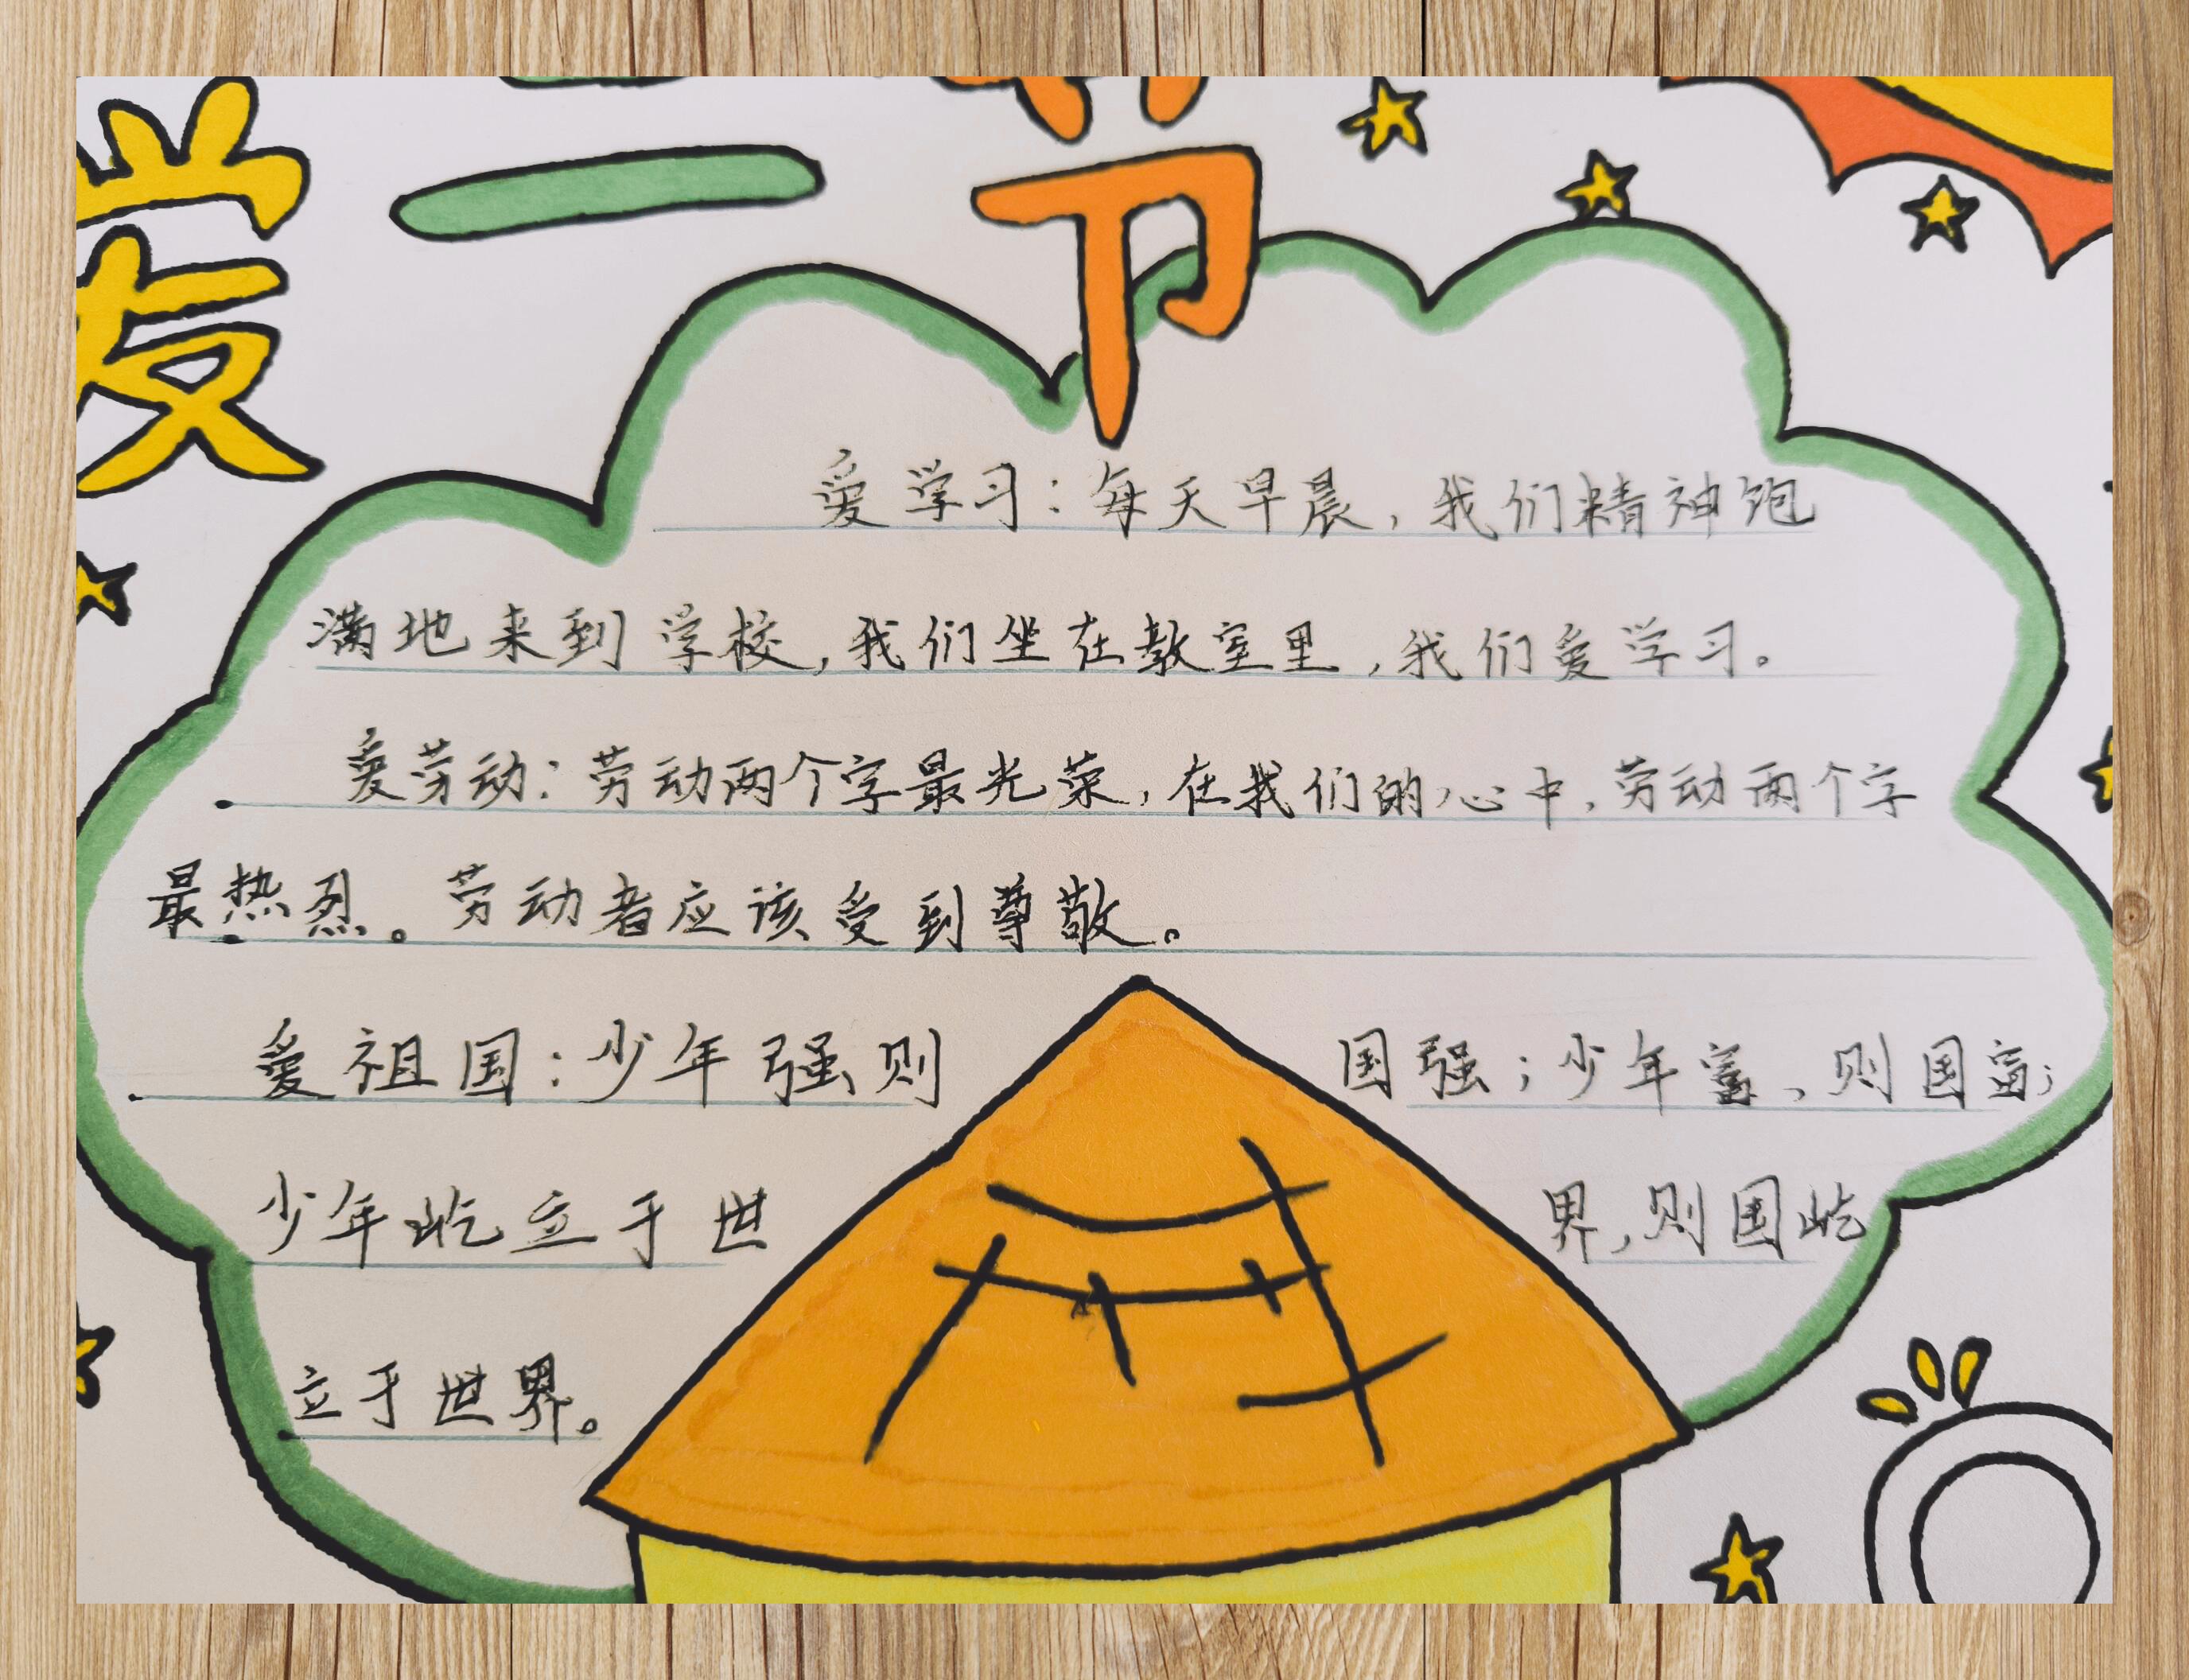 爱二节
爱学习：每天早晨，我们精神饱
满地来到学校，我们坐在教室里，我们爱学习。
爱劳动：劳动两个字最光荣，在我们的心中，劳动两个字
最热烈。劳动者应该受到尊敬。
爱祖国：少年强则国强；少年富，则国富；
少年屹立于世界，则国屹
立于世界。